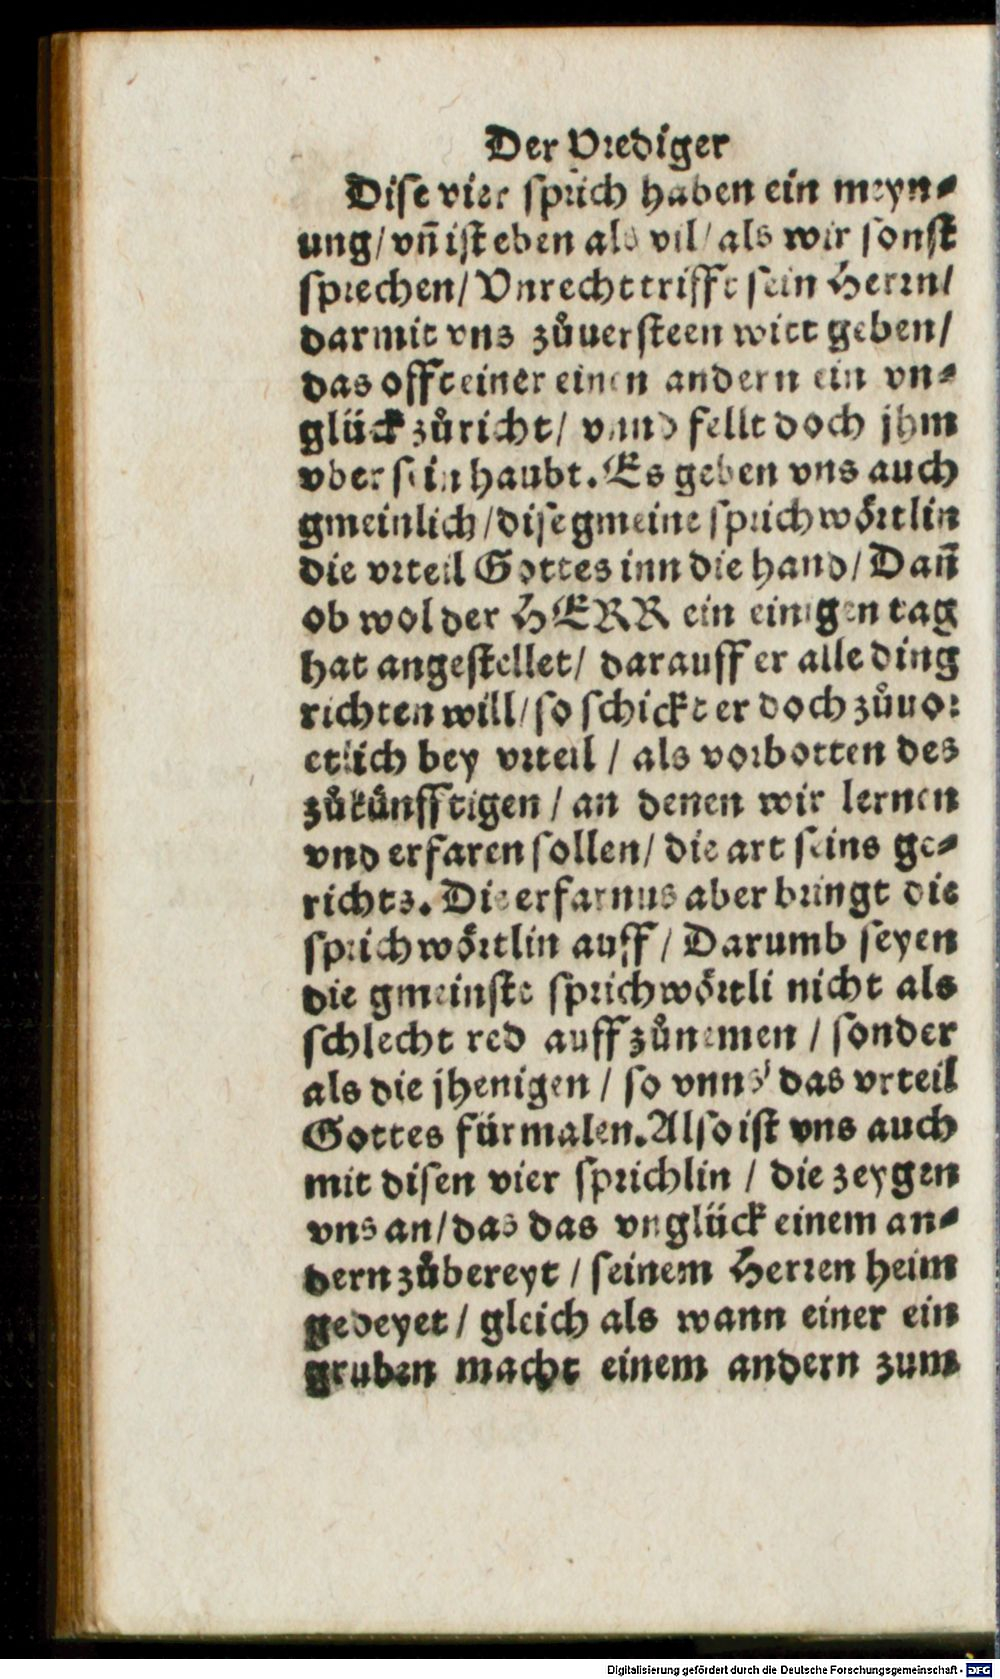 Der Prediger
Dise vier sprüch haben ein meyn-
ung/ vñ ist eben als vil/ als wir sonst
sprechen/ Vnrecht trifft sein Herrn/
darmit vns zůuersteen wirt geben/
das offt einer einen andern ein vn-
glück zůricht/ vnnd fellt doch jhm
vber sein haubt. Es geben vns auch
gmeinlich/ dise gmeine sprichwörtlin
die vrteil Gottes inn die hand/ Dañ
ob wol der HERR ein einigen tag
hat angestellet/ darauff er alle ding
richten will/ so schickt er doch zůuor
etlich bey vrteil / als vorbotten des
zůkünfftigen / an denen wir lernen
vnd erfaren sollen/ die art seins ge-
richts. Die erfarnus aber bringt die
sprichwörtlin auff / Darumb seyen
die gmeinste sprichwörtli nicht als
schlecht red auff zůnemen / sonder
als die jhenigen / so vnns das vrteil
Gottes fürmalen. Also ist vns auch
mit disen vier sprichlin / die zeygen
vns an/ das das vnglück einem an-
dern zůbereyt / seinem Herren heim
gedeyet / gleich als wann einer ein
gruben macht einem andern zum
Digitalisierung gefördert durch die Deutsche Forschungsgemeinschaft - DFG